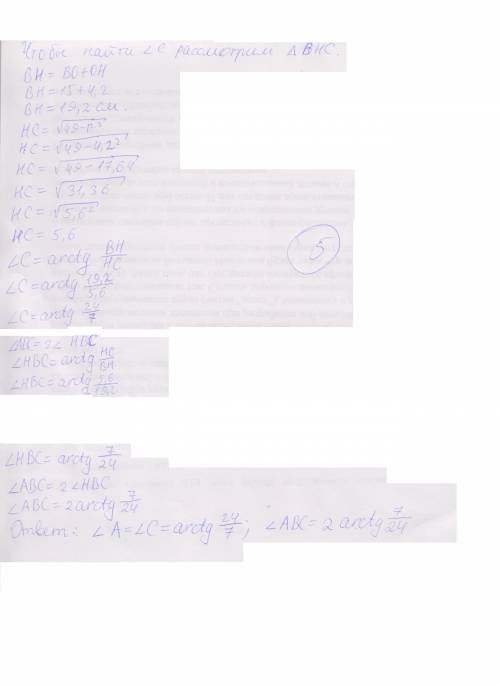 Чтобы найти ∠C рассмотрим △BHC.
BH = BO+OH
BH = 15+4,2
BH = 19,2 см.
HC = √49-r²
HC = √49-4,2²
HC = √49-17,64
HC = √31,36
HC = √5,6²
HC = 5,6
∠C = arctg BH/HC
5
∠C = arctg 19,2/5,6
∠C = arctg 24/7
= 2∠HBC
∠HBC = arctg HC/BH
∠HBC = arctg 5,6/19,2
∠HBC = arctg 7/24
∠ABC = 2∠HBC
∠ABC = 2arctg 7/24
Ответ: ∠A=∠C=arctg 24/7; ∠ABC = 2 arctg 7/24